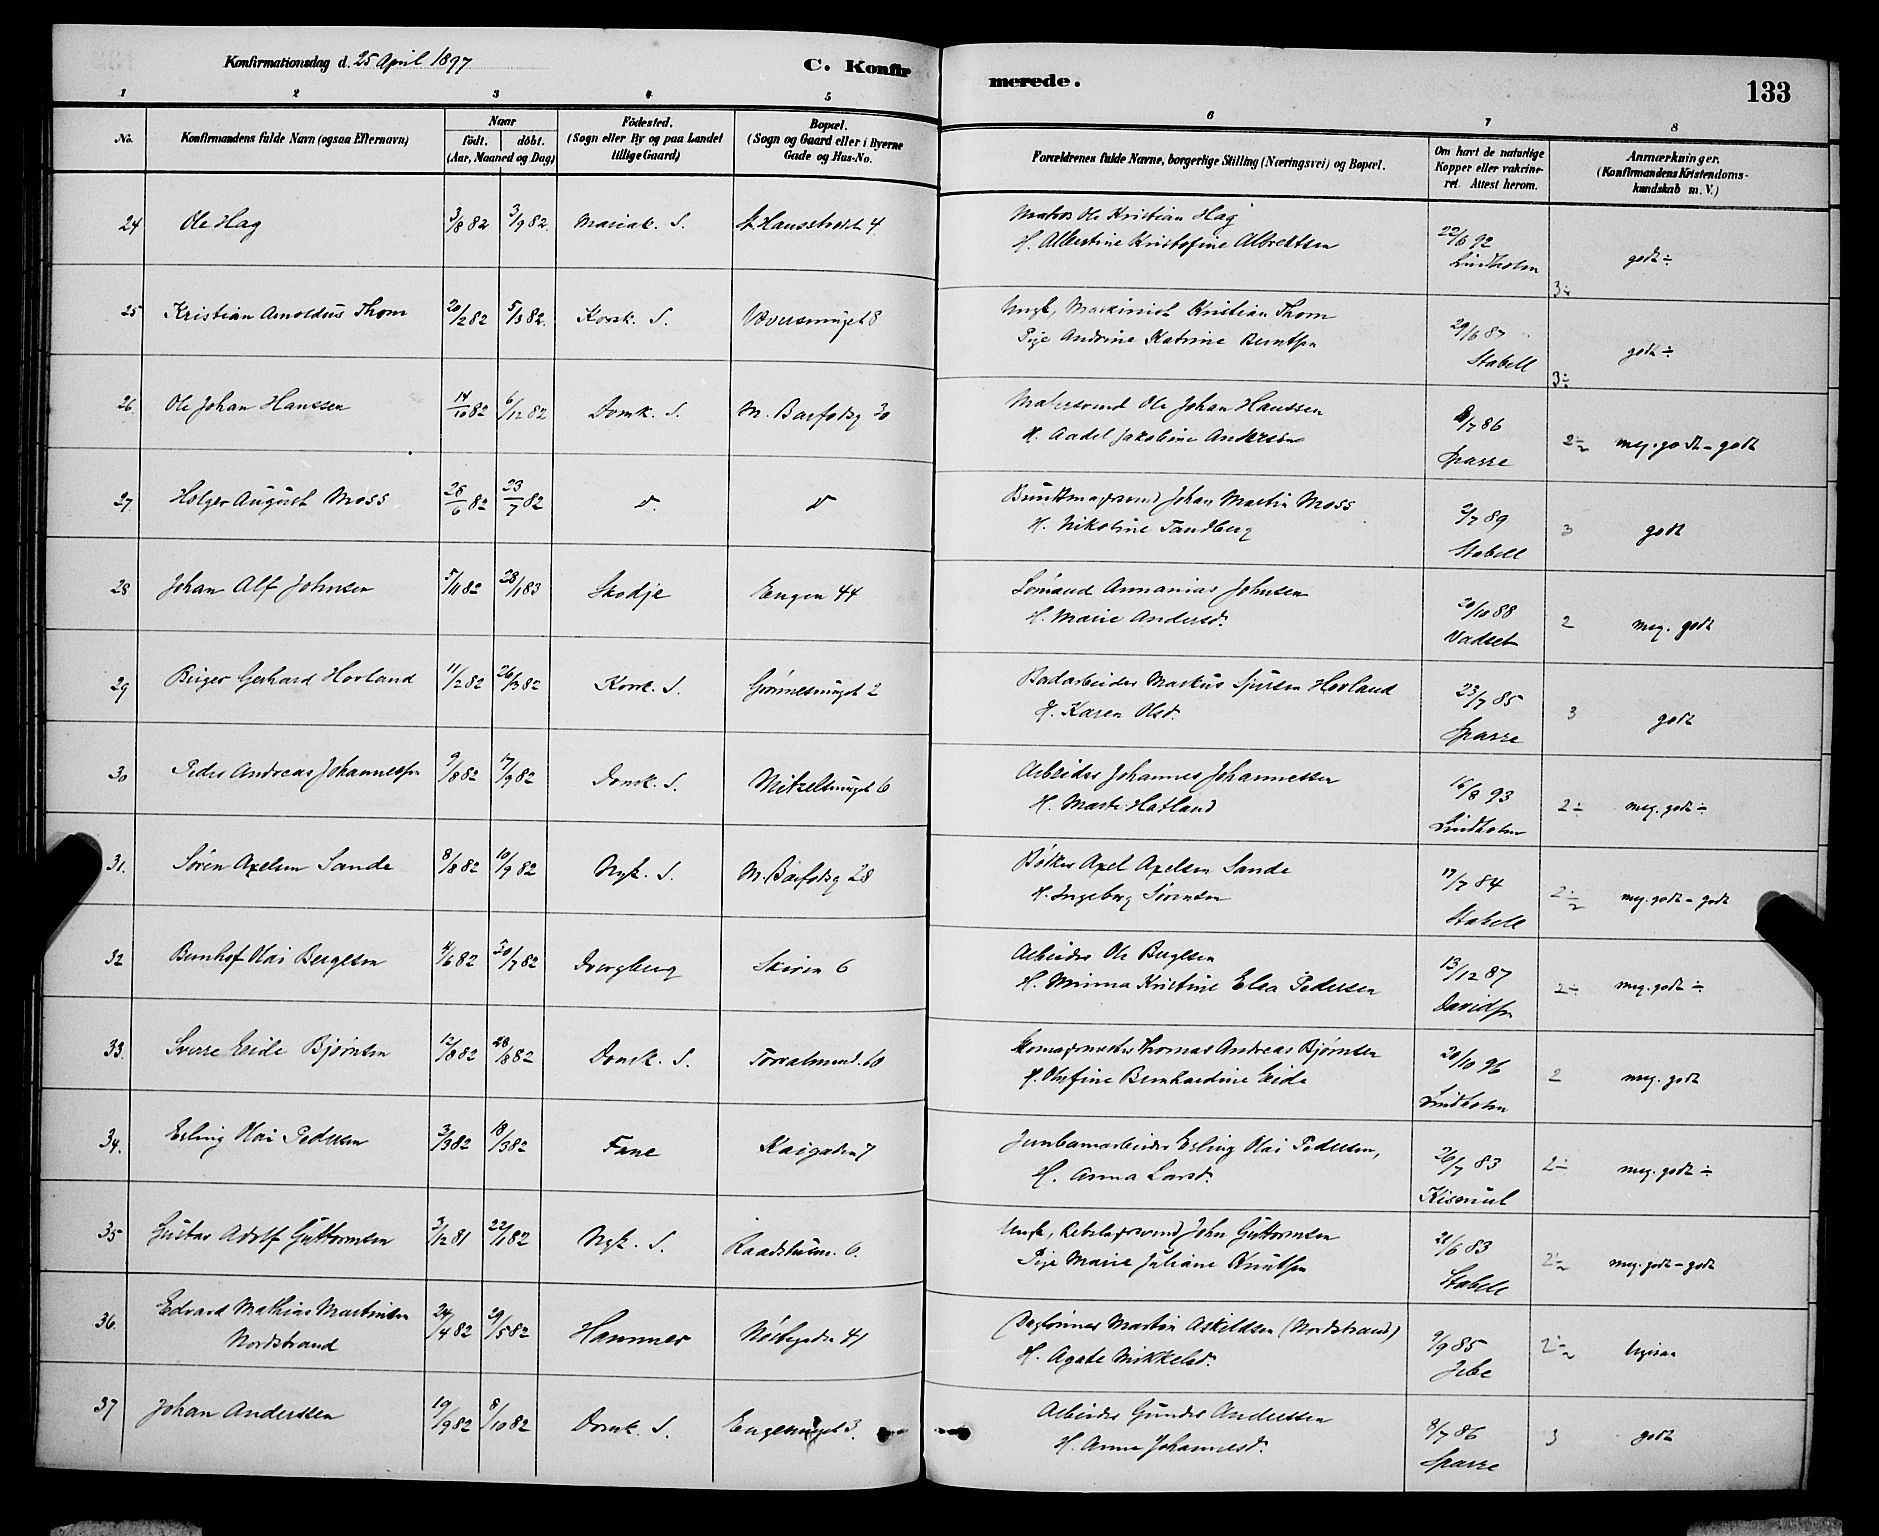 Konfirmationsdag d. 25 April 1897
C. Konfirmerede.
133
1 2 3 4 5 6 7 8
No. Konfirmandens fulde Navn (ogsaa Efternavn) Naar födt. döbt. (Aar, Maaned og Dag) Födested. (Sogn eller By og paa Landet tillige Gaard) Bopæl. (Sogn og Gaard eller i Byerne Gade og Hus-No. Forældrenes fulde Navne, borgerlige Stilling (Næringsvei) og Bopæl. Om havt de naturlige Kopper eller vakcineret. Attest herom. Anmærkninger. (Konfirmandens Kristendomskundskab m. V.)
24 Ole Hag 3/8 82 3/9 82. Mariak. S. 4 Matros Ole Kristian Hag 22/6 92
H. Albertine Kristofine Albrektsen Lindholm 3÷ godt ÷
25 Kristian Arnoldus Thom 20/2 82 5/3 82. Korsk. S. Væversmuget 8 Ungk, Maskinist Kristian Thom 29/6 87
Pige Andrine Katrine Berntsn Stabell 3÷ godt ÷
26. Ole Johan Hanssen 14/10 82 6/12 82 Domk. S. M. Barfodsg 30 Ole Johan Hanssen /7 86
H. Aadel Jakobine Andersen Sparre 2÷2 meg. godt - godt
27. Holger August Moss 28/6 82 23/7 82 Johan Martin Moss 2/7 89
H. Nikoline Tandberg Stabell 3 godt
28 Johan Alf Johnsen 5/11 82 28/1 83 Skodje Engen 44 Sømand Annanias Johnsen 20/10 88
H. Marie Andersd. Vadset 2 meg. godt
29 Birger Gerhard Hovland 11/2 82 26/3 82 Korsk. S. 2 Markus Sjursen Hovland 23/7 85
H. Karen Olsd. Sparre 3 godt
30 Peder Andreas Johannessn 9/8 82 17/9 82 Domk. S. Nitzeltmuget 6 Arbeider Johannes Johannessen 16/8 93
H. Marte Hatland Lindholm 2÷ meg. godt ÷
31. Søren Axelsen Sande 8/8 82 10/9 82 Nyk. S. M. Barfodsg 28 Bøkker Axel Axelsen Sande 17/7 84
H. Ingeborg Sørensen Stabell 2÷2 meg. godt - godt
32 Bernhof Olai Bergesen 4/6 82 30/7 82 Dverberg Skiven 6 Arbeider Ole Bergesen 13/12 87
H. Minna Kristine Elea Pedersen Davidsn 2÷ meg. godt ÷
33. Sverre Eide Bjørnsen 12/8 82 28/8 82 Domk. S. Torvalmend. 60 Skomagermester Thomas Andreas Bjørnsen 20/10 96
H. Olefine Bernhardine Eide Lindholm 2 meg. godt
34. Erling Olai Pedersen 3/3 82 18/3 82 Fane Kaigaden 7 Jernbanearbeider Erling Olai Pedersen, 26/7 83
H. Anna Larsd. Kismul 2÷ meg. godt ÷
35 Gustav Adolf Guttormsen 3/12 81 22/1 82 Nyk. S. Raadstuen. 6. Ungk, John Guttormsen 21/6 83
Pige Marie Juliane Knutsn Stabell 2÷2 meg. godt - godt
36. Edvard Mathias Martinsen 24/4 82 29/5 82 Hammer Nøstegaden 41 Daglønner Martin Askeldsen (Nordstrand) 9/9 85
Nordstrand H. Agate Mikkelsd. Jebe 2÷2 ligesaa
37 Johan Anderssen 19/9 82 8/10 82 Domk. S. Engesmuget 3. Arbeider Gunder Anderssen 8/7 86
H. Anna Johannesd. Sparre 3 godt